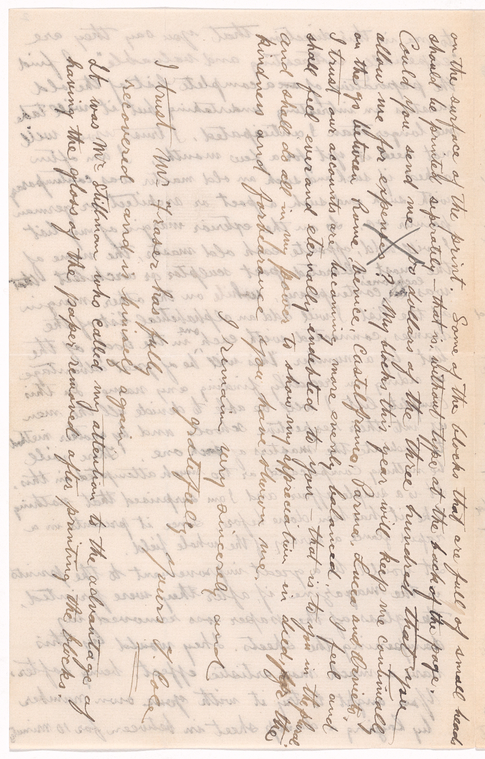 on the surface of the print. Some of the blocks that are full of small heads
should be printed seperately – that is without type at the back of the page.
Could you send me 100 dollars of the three hundred that you
allow me for expenses? My blocks this year will keep me continually
on the go between Rome, Venice, Castelfranco, Parma, Lucca and
I trust our accounts are becoming more evenly balanced. I feel and
shall feel ever and eternally indebted to you – that is to you in the
and shall do all in my power to show my appreciation in deed for the
kindness and forbearance you have shown me.
I remain very sincerely and
gratefully yours
I trust Mr Fraser has fully
recovered and is himself again.
It was Mr Stillman who called my attention to the advantage of
having the gloss of the paper removed after printing the blocks